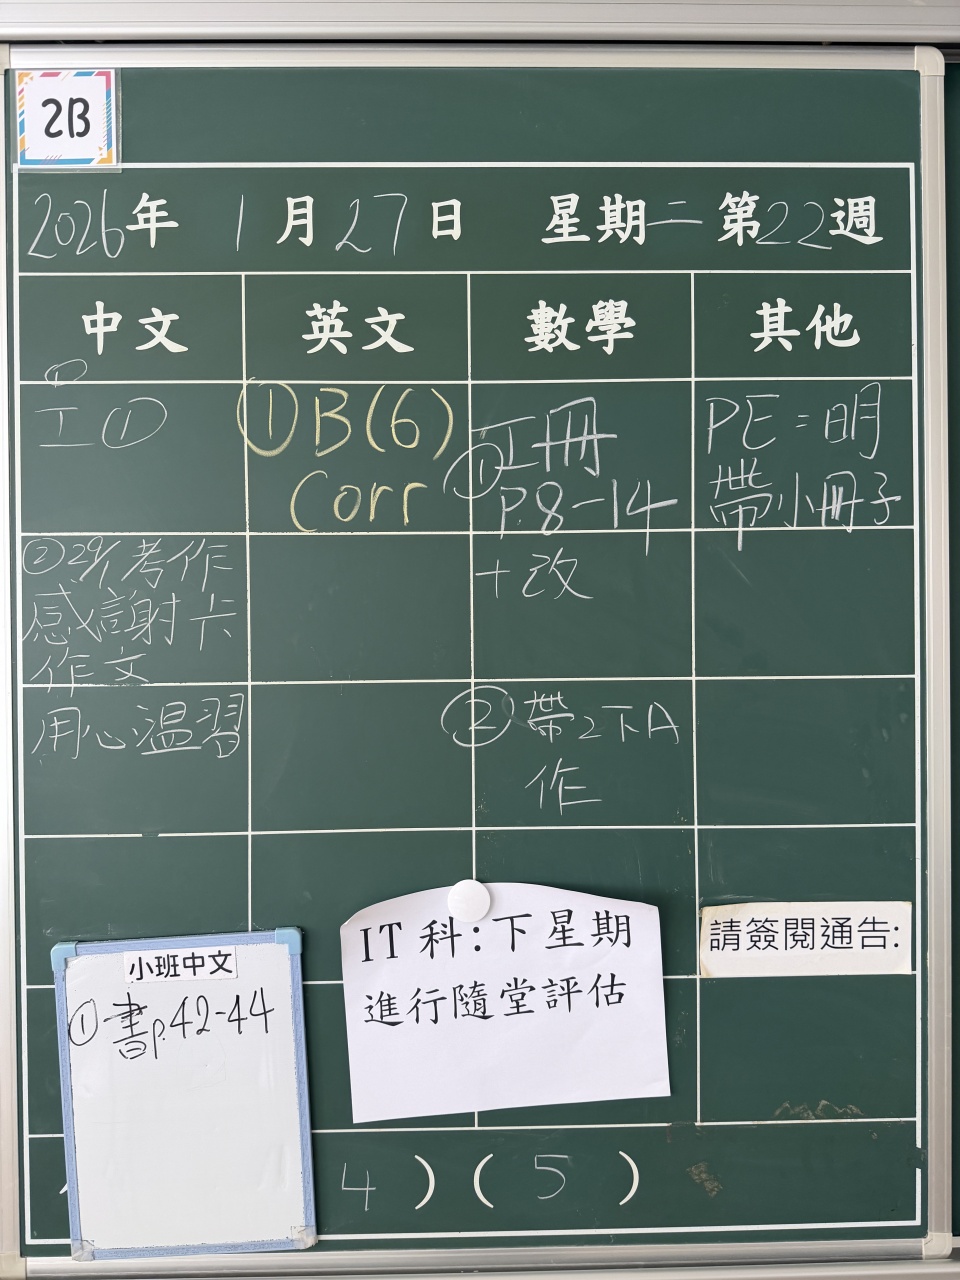 2B
2026年 1月27日 星期二 第22週
中文 英文 數學 其他
①
工①
②29/1考作
感謝卡
作文
用心溫習
①B(6)
Corr
①工冊
P.8-14
+改
②帶2下A
作
PE=明
帶小冊子
請簽閱通告:
IT科:下星期
進行隨堂評估
小班中文
①書p.42-44
4 ) ( 5 )